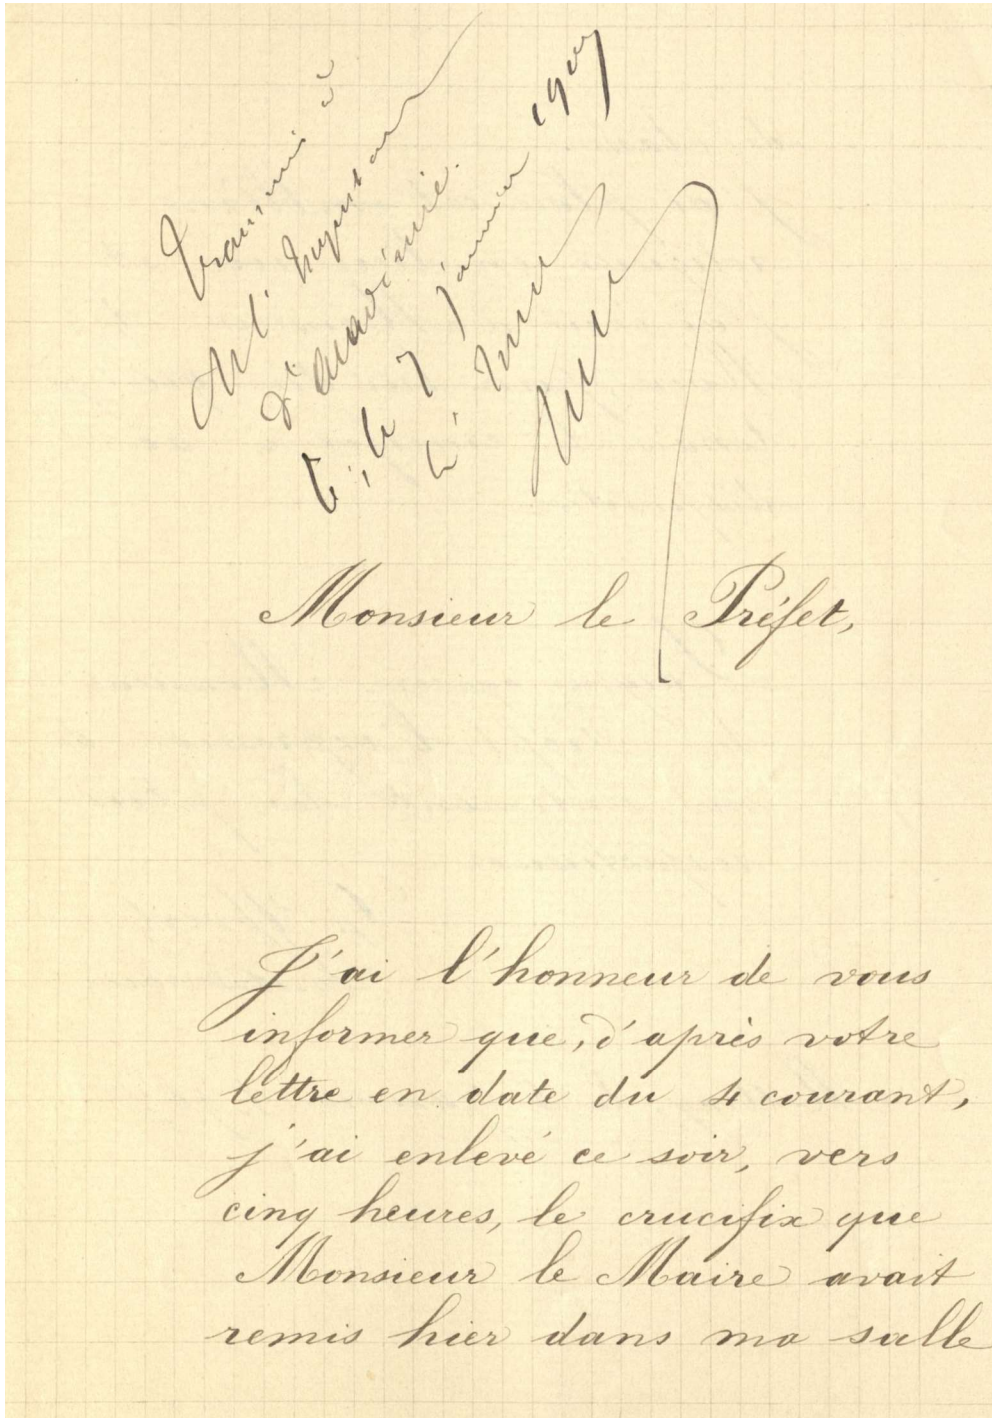 Transmis à
M. l'Inspecteur
d'Académie.
le 7 janvier 1907
Monsieur le Préfet,
J'ai l'honneur de vous
informer que, d'après votre
lettre en date du 4 courant,
j'ai enlevé ce soir, vers
cinq heures, le crucifix que
Monsieur le Maire avait
remis hier dans ma salle